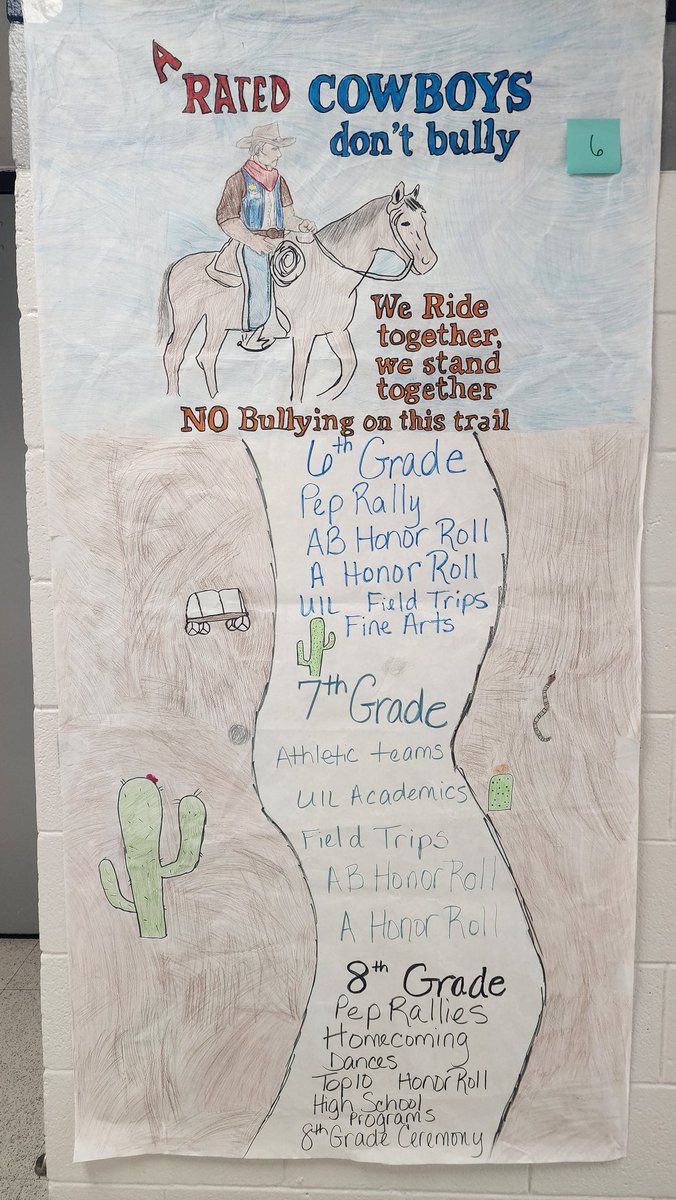 A RATED COWBOYS
don't bully
6
We Ride
together,
we stand
together
NO Bullying on this trail
6th Grade
Pep Rally
AB Honor Roll
A Honor Roll
UIL Field Trips
Fine Arts
7th Grade
Athletic teams
UIL Academics
Field Trips
AB Honor Roll
A Honor Roll
8th Grade
Pep Rallies
Homecoming
Dances
Top 10 Honor Roll
High School
Programs
8th Grade Ceremony